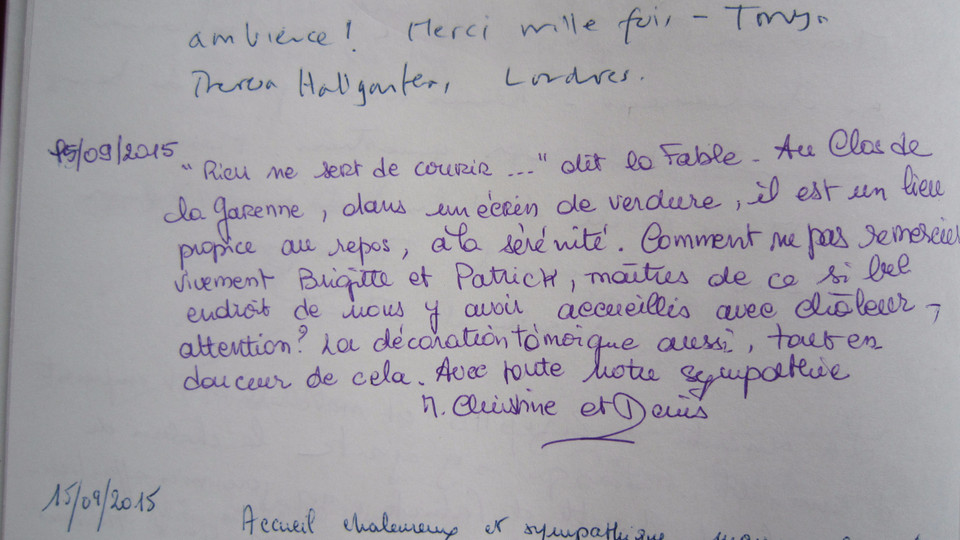 ambience! Merci mille fois - Tony.
Theresa Hallgarten, Londres.
15/09/2015
"Rien ne sert de courir ..." dit la Fable. Au Clos de
la Garenne, dans un écrin de verdure, il est un lieu
propice au repos, à la sérénité. Comment ne pas remercier
vivement Brigitte et Patrick, maîtres de ce si bel
endroit de nous y avoir accueillis avec chaleur,
attention? La décoration témoigne aussi, tout en
douceur de cela. Avec toute notre sympathie
M. Christine et Denis
15/09/2015
Accueil chaleureux et sympathique